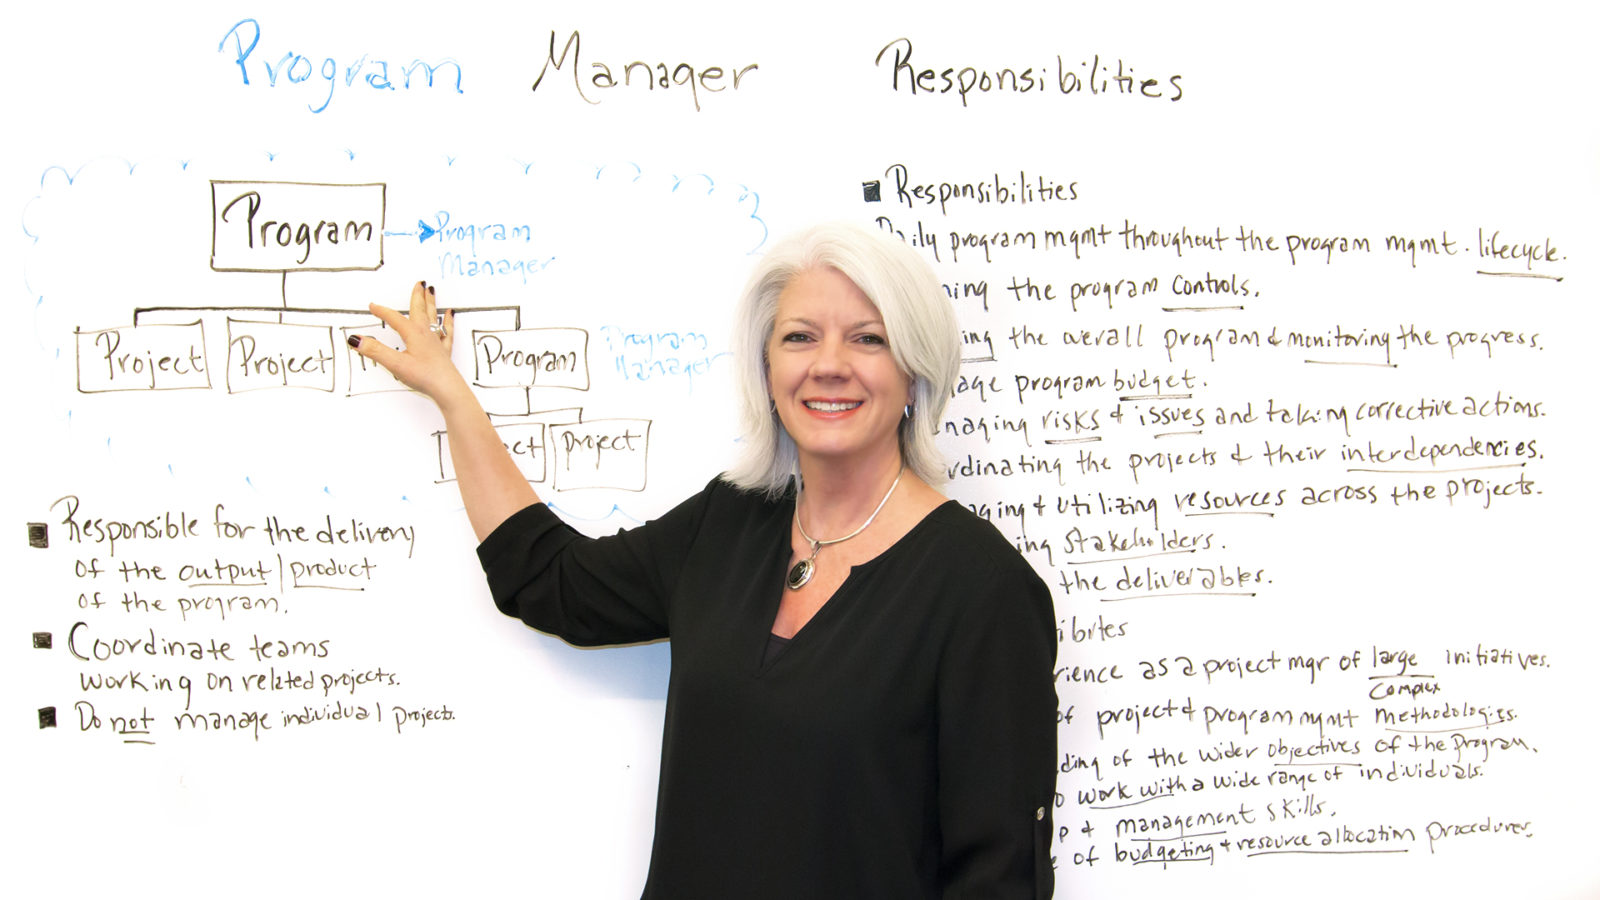 Program Manager Responsibilities
Program
Program
Manager
Project
Project
Program
Program
Manager
Project
■ Responsible for the delivery
of the output / product
of the program.
■ Coordinate teams
working on related projects.
■ Do not manage individual projects.
■ Responsibilities
Daily program mgmt throughout the program mgmt. lifecycle.
the program controls.
the overall program & monitoring the progress.
program budget.
risks & issues and taking corrective actions.
the projects & their interdependencies.
& utilizing resources across the projects.
stakeholders.
the deliverables.
as a project mgr of large initiatives.
complex
of project & program mgmt methodologies.
of the wider objectives of the program.
work with a wide range of individuals.
& management skills.
of budgeting & resource allocation procedures.